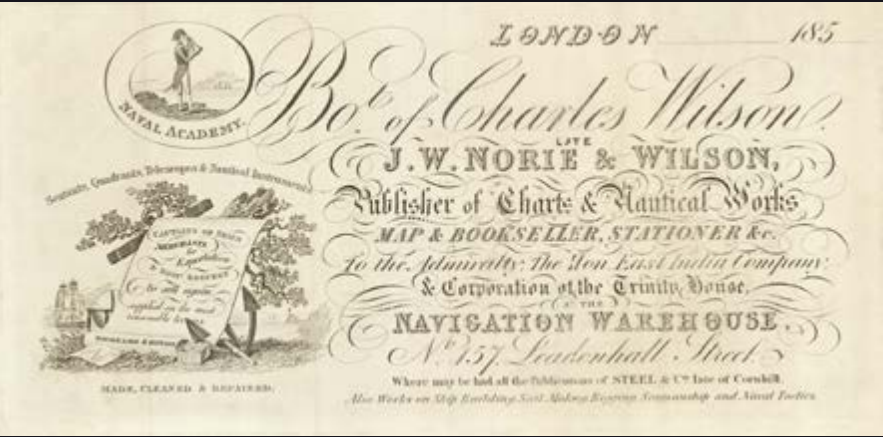 LONDON 185
NAVAL ACADEMY.
Bot. of Charles Wilson.
LATE
J.W. NORIE & WILSON,
Publisher of Charts & Nautical Works
MAP & BOOKSELLER, STATIONER &c.
To the Admiralty, The Hon. East India Company,
& Corporation of the Trinity House,
AT THE
NAVIGATION WAREHOUSE.
No. 157, Leadenhall Street.
Where may be had all the Publications of STEEL & Co. late of Cornhill.
Also Works on Ship Building Sail Making Rigging Seamanship and Naval Tactics
Sextants, Quadrants, Telescopes & Nautical Instruments
CAPTAINS OF SHIPS
MERCHANTS
for
Exportation
supplied on the most
reasonable
MADE, CLEANED & REPAIRED.